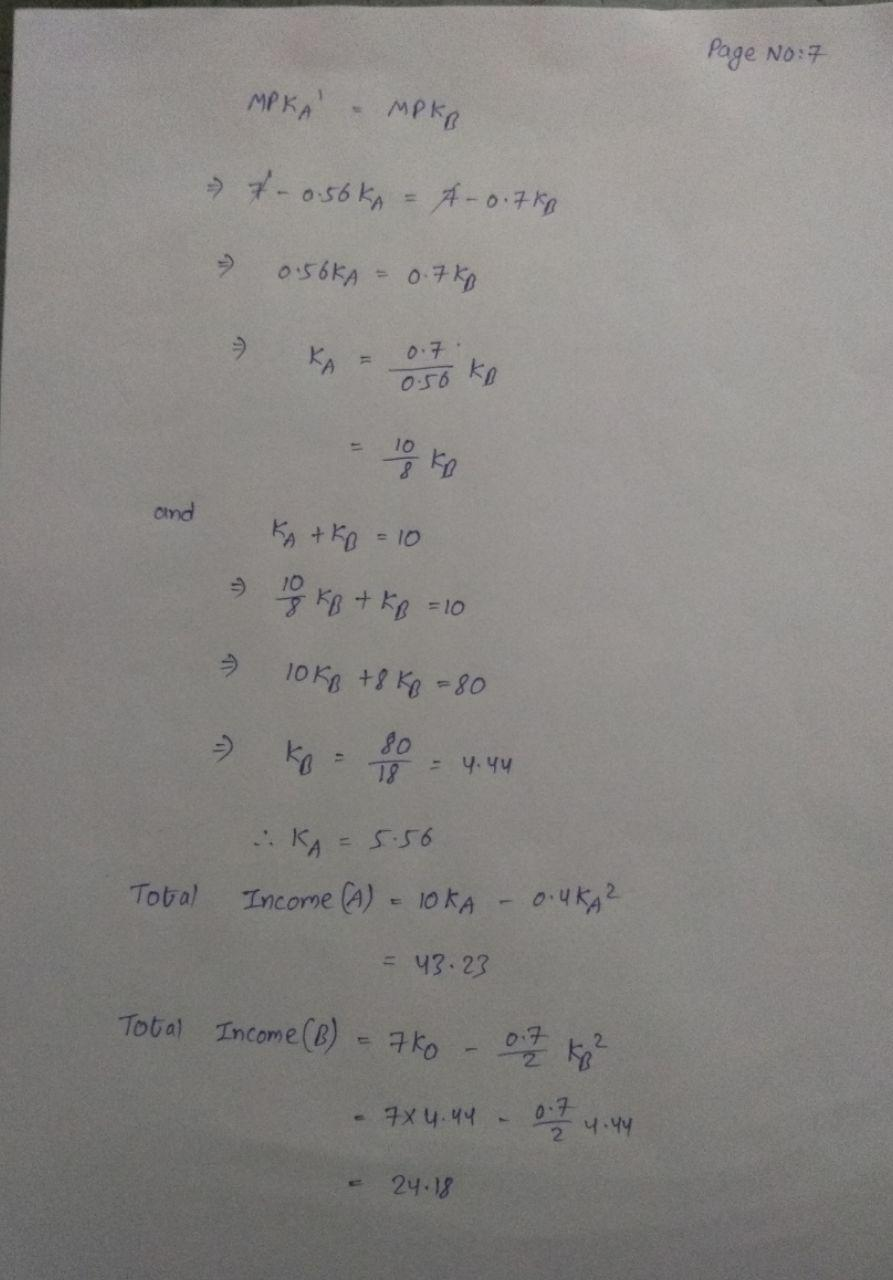 Page No:7
MPK_A' = MPK_B
⇒ 7 - 0.56 K_A = 7 - 0.7 K_B
⇒ 0.56K_A = 0.7 K_B
⇒ K_A = 0.7/0.56 K_B
= 10/8 K_B
and K_A + K_B = 10
⇒ 10/8 K_B + K_B = 10
⇒ 10K_B + 8 K_B = 80
⇒ K_B = 80/18 = 4.44
∴ K_A = 5.56
Total Income (A) = 10 K_A - 0.4 K_A²
= 43.23
Total Income (B) = 7K_0 - 0.7/2 K_B²
= 7 X 4.44 - 0.7/2 4.44
= 24.18